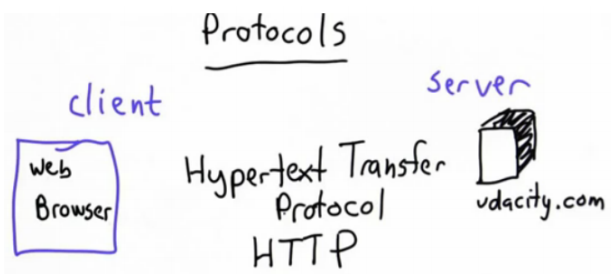 Protocols
client
server
Web
Browser
Hypertext Transfer
Protocol
HTTP
udacity.com